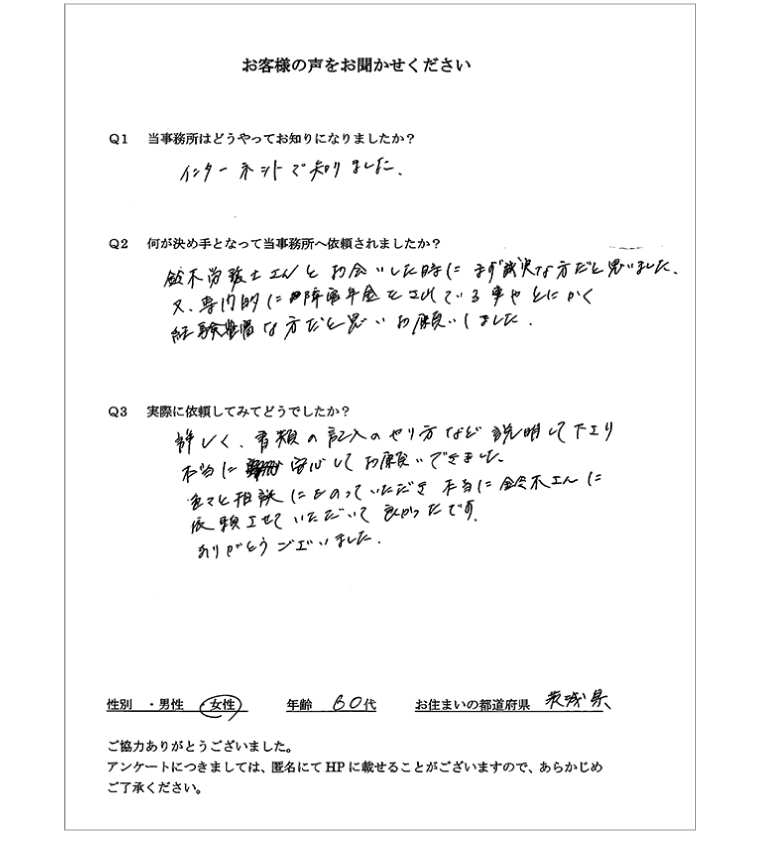 お客様の声をお聞かせください
Q1 当事務所はどうやってお知りになりましたか？
インターネットで知りました．
Q2 何が決め手となって当事務所へ依頼されましたか？
鈴木労務士さんとお会いした時にまず誠実な方だと思いました．
又、専門的に障害年金とされている事やとにかく
経験豊富な方だと思いお願いしました．
Q3 実際に依頼してみてどうでしたか？
詳しく、書類の記入のやり方など説明して下さり
本当に安心してお願いできました．
色々と相談にものっていただき本当に鈴木さんに
依頼させていただいて良かったです．
ありがとうございました．
性別 ・男性 ・女性 年齢 60代 お住まいの都道府県 茨城県
ご協力ありがとうございました。
アンケートにつきましては、匿名にてHPに載せることがございますので、あらかじめ
ご了承ください。